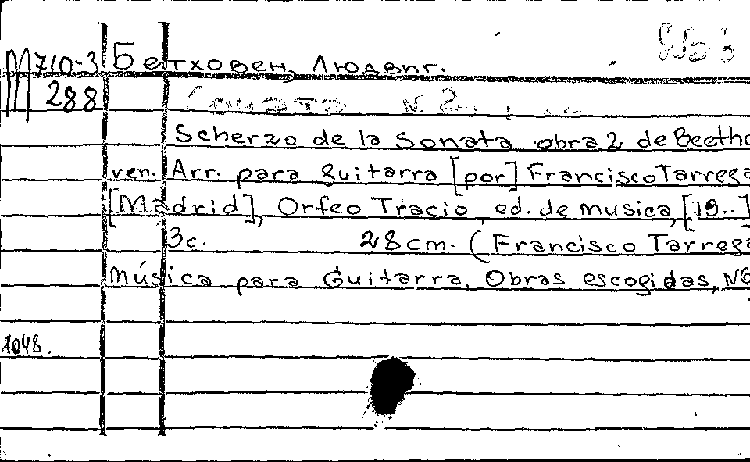 М 710-3 Бетховен, Людвиг.
288
Соната N 2
Scherzo de la Sonata obra 2 de Beetho
ven. Arr. para Guitarra [por] Francisco Tarrega
[Madrid], Orfeo Tracio, ed. de musica, [19..]
3c. 28 cm. (Francisco Tarrega
Música para Guitarra. Obras escogidas, Nº
1048.